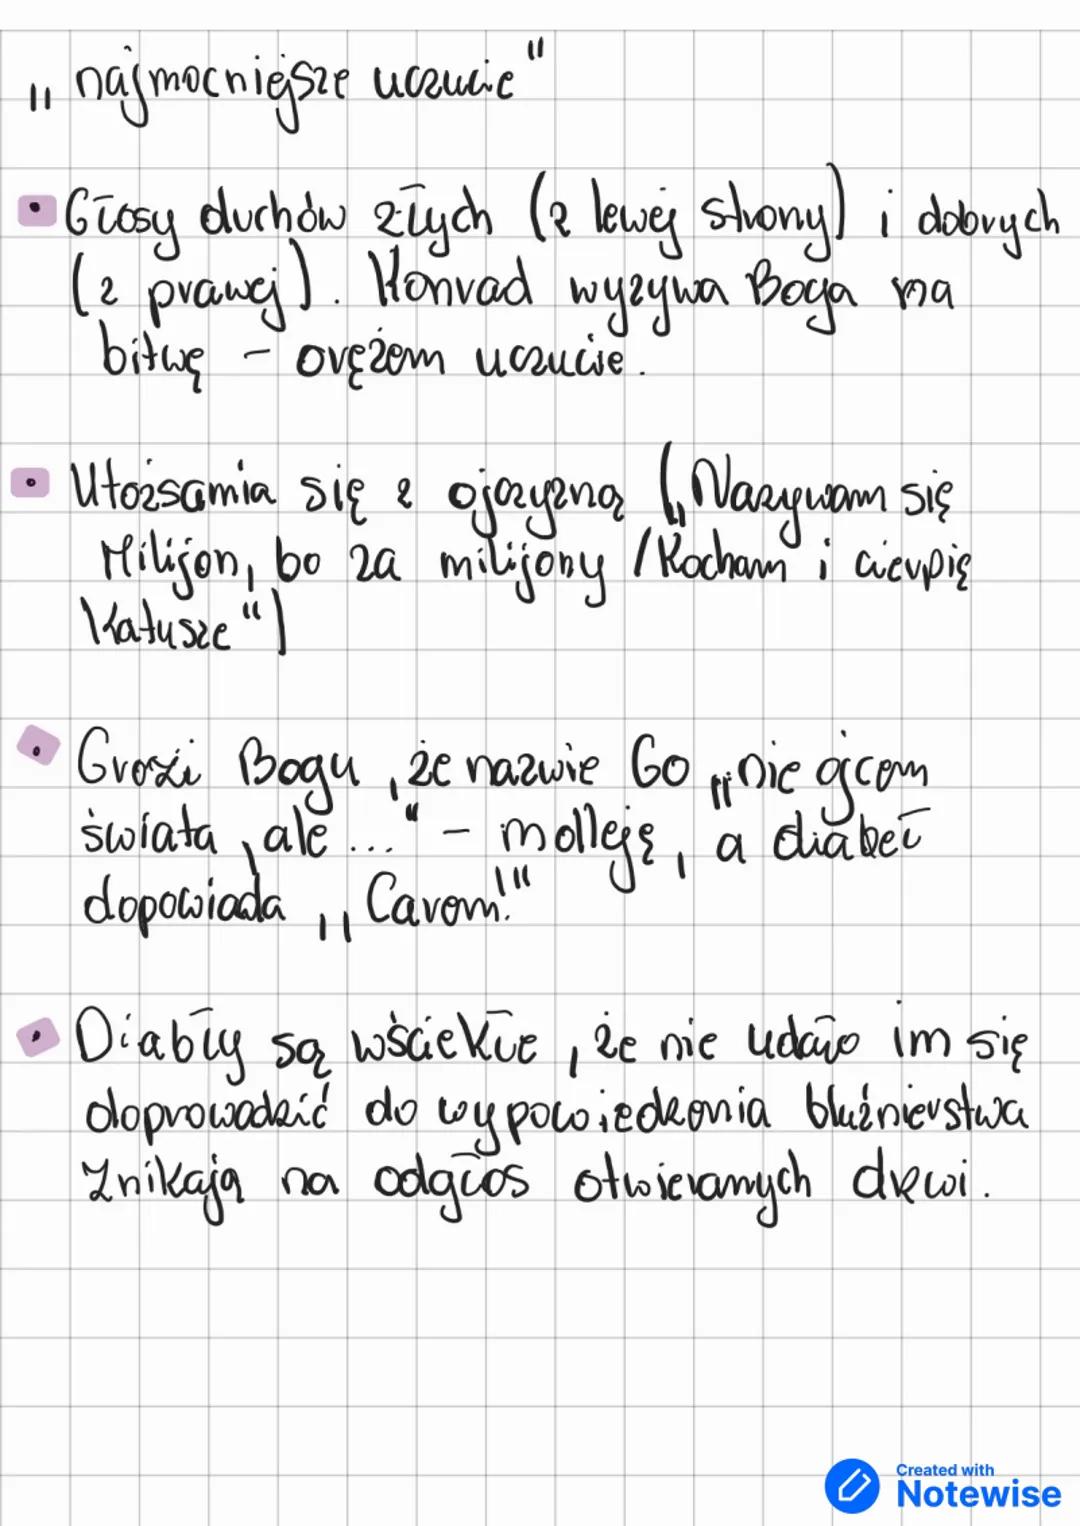 „najmocniejsze uczucie"
• Głosy duchów złych (z lewej strony) i dobrych
(z prawej). Konrad wyzywa Boga na
bitwę - orężem uczucie.
• Utożsamia się z ojczyzną („Nazywam się
Milijon, bo za milijony / Kocham i cierpię
Katusze")
• Grozi Bogu, że nazwie Go „nie ojcem
świata, ale..." - mdleję, a diabeł
dopowiada „Carem!"
• Diabły są wściekłe, że nie udało im się
doprowadzić do wypowiedzenia bluźnierstwa
Znikają na odgłos otwieranych drzwi.
Created with
Notewise